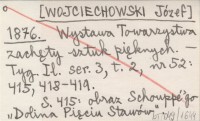 [WOJCIECHOWSKI Józef]
1876. Wystawa Towarzystwa
zachęty sztuk pięknych. –
Tyg. Il. ser. 3, t. 2, nr 52:
415, 418-419.
S. 415: obraz Schouppé'go
„Dolina Pięciu Stawów".